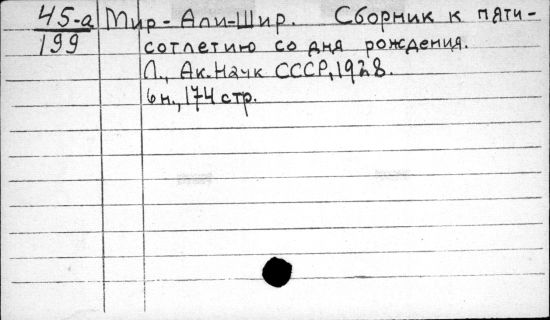 45-а Мир-Али-Шир. Сборник к пяти-
199 сотлетию со дня рождения.
Л., Ак. Наук СССР, 1928.
6 н., 174 стр.